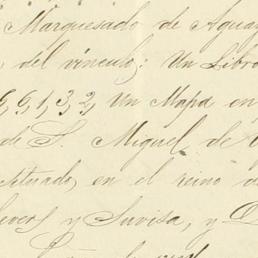 Marquesado de Aguay
del vínculo: Un Libro
6,6,1,3,2, Un Mapa en
de S. Miguel de
situado, en el reino de
y Suvisa, y